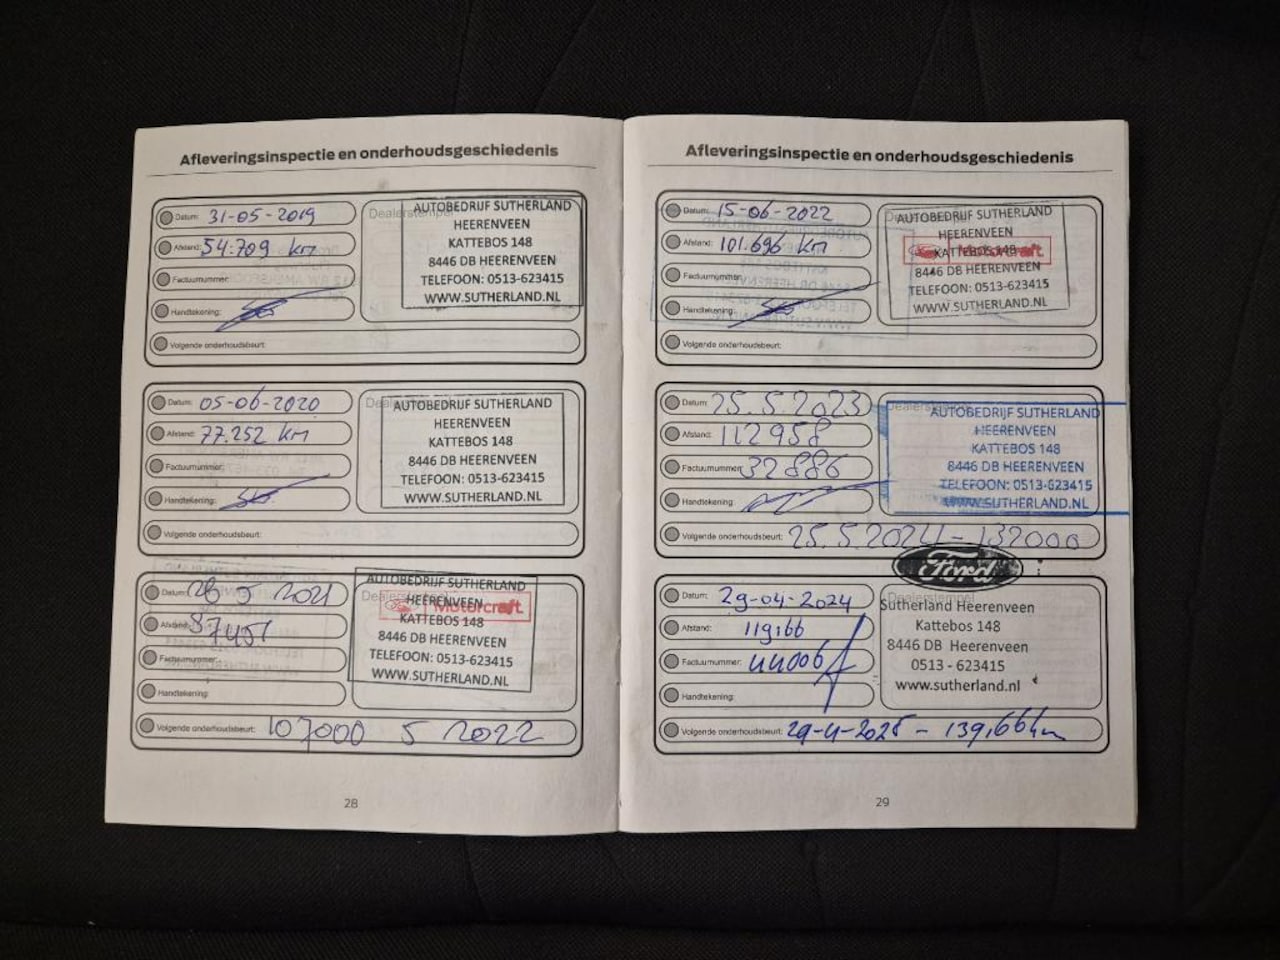 Afleveringsinspectie en onderhoudsgeschiedenis
Datum: 31-05-2019
Afstand: 54.709 km
Factuurnummer:
Handtekening:
Volgende onderhoudsbeurt:
Dealerstempel
AUTOBEDRIJF SUTHERLAND
HEERENVEEN
KATTEBOS 148
8446 DB HEERENVEEN
TELEFOON: 0513-623415
WWW.SUTHERLAND.NL
Datum: 05-06-2020
Afstand: 77.252 km
Factuurnummer:
Handtekening:
Volgende onderhoudsbeurt:
AUTOBEDRIJF SUTHERLAND
HEERENVEEN
KATTEBOS 148
8446 DB HEERENVEEN
TELEFOON: 0513-623415
WWW.SUTHERLAND.NL
Datum: 2021
Afstand: 87451
Factuurnummer:
Handtekening:
Volgende onderhoudsbeurt: 107000 5 2022
AUTOBEDRIJF SUTHERLAND
HEERENVEEN
Motorcraft
KATTEBOS 148
8446 DB HEERENVEEN
TELEFOON: 0513-623415
WWW.SUTHERLAND.NL
28
Afleveringsinspectie en onderhoudsgeschiedenis
Datum: 15-06-2022
Afstand: 101.696 km
Factuurnummer:
Handtekening:
Volgende onderhoudsbeurt:
AUTOBEDRIJF SUTHERLAND
HEERENVEEN
KATTEBOS 148
8446 DB HEERENVEEN
TELEFOON: 0513-623415
WWW.SUTHERLAND.NL
Datum: 25.5.2023
Afstand: 112958
Factuurnummer: 32886
Handtekening:
Volgende onderhoudsbeurt: 25.5.2024 - 132000
Dealerstempel
AUTOBEDRIJF SUTHERLAND
HEERENVEEN
KATTEBOS 148
8446 DB HEERENVEEN
TELEFOON: 0513-623415
WWW.SUTHERLAND.NL
Datum: 29-04-2024
Afstand: 119166
Factuurnummer: 44006
Handtekening:
Volgende onderhoudsbeurt: 29-4-2025 - 139,166 km
Ford
Dealerstempel
Sutherland Heerenveen
Kattebos 148
8446 DB Heerenveen
0513 - 623415
www.sutherland.nl
29